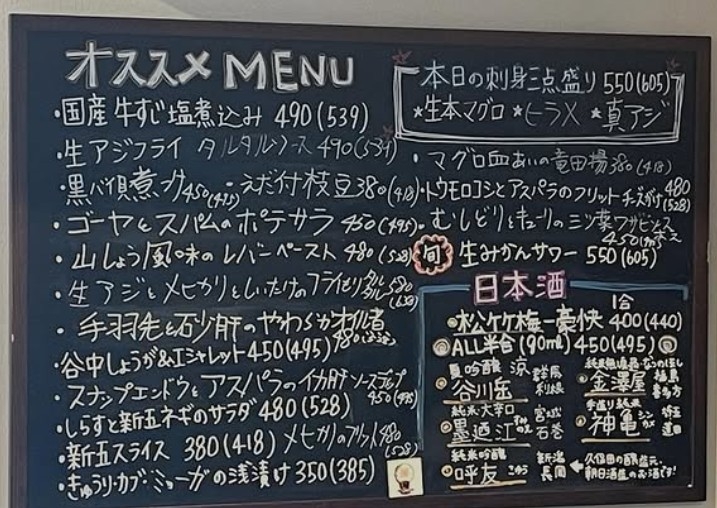 オススメ MENU
・国産牛すじ塩煮込み 490(539)
・生アジフライ タルタルソース 490(539)
・黒バイ貝煮 450(495)・えだ付枝豆 380(418)
・ゴーヤとスパムのポテサラ 450(495)
・山しょう風味のレバーペースト 480(528)
・生アジとメヒカリとしいたけのフライセリ タルタル 580(638)
・手羽先と砂肝のやわらかオイル煮 480(528)
・谷中しょうが&エシャレット 450(495)
・スナップエンドウとアスパラのイカ肝ソース 450(495)
・しらすと新玉ネギのサラダ 480(528)
・新玉スライス 380(418) メヒカリのフリット 480(528)
・きゅうり・カブ・ミョーガの浅漬け 350(385)
本日の刺身三点盛り 550(605)
★生本マグロ ★ヒラメ ★真アジ
・マグロ血あいの竜田揚 380(418)
・トウモロコシとアスパラのフリットチーズがけ 480(528)
・むしどりときゅーりの三ツ葉ワサビ 450(495)
旬 生みかんサワー 550(605)
日本酒
1合
松竹梅一豪快 400(440)
ALL半合(90ml) 450(495)
夏吟醸 涼 群馬
谷川岳 利根
純米無濾過 なつのほし 福島
金澤屋 喜多方
純米大辛口 宮城
墨廼江 すみのえ 石巻
手造り純米 埼玉
神亀 シンカメ 蓮田
純米吟醸 新潟
呼友 こゆう 長岡
←久保田の醸造元、
朝日酒造のお酒です!